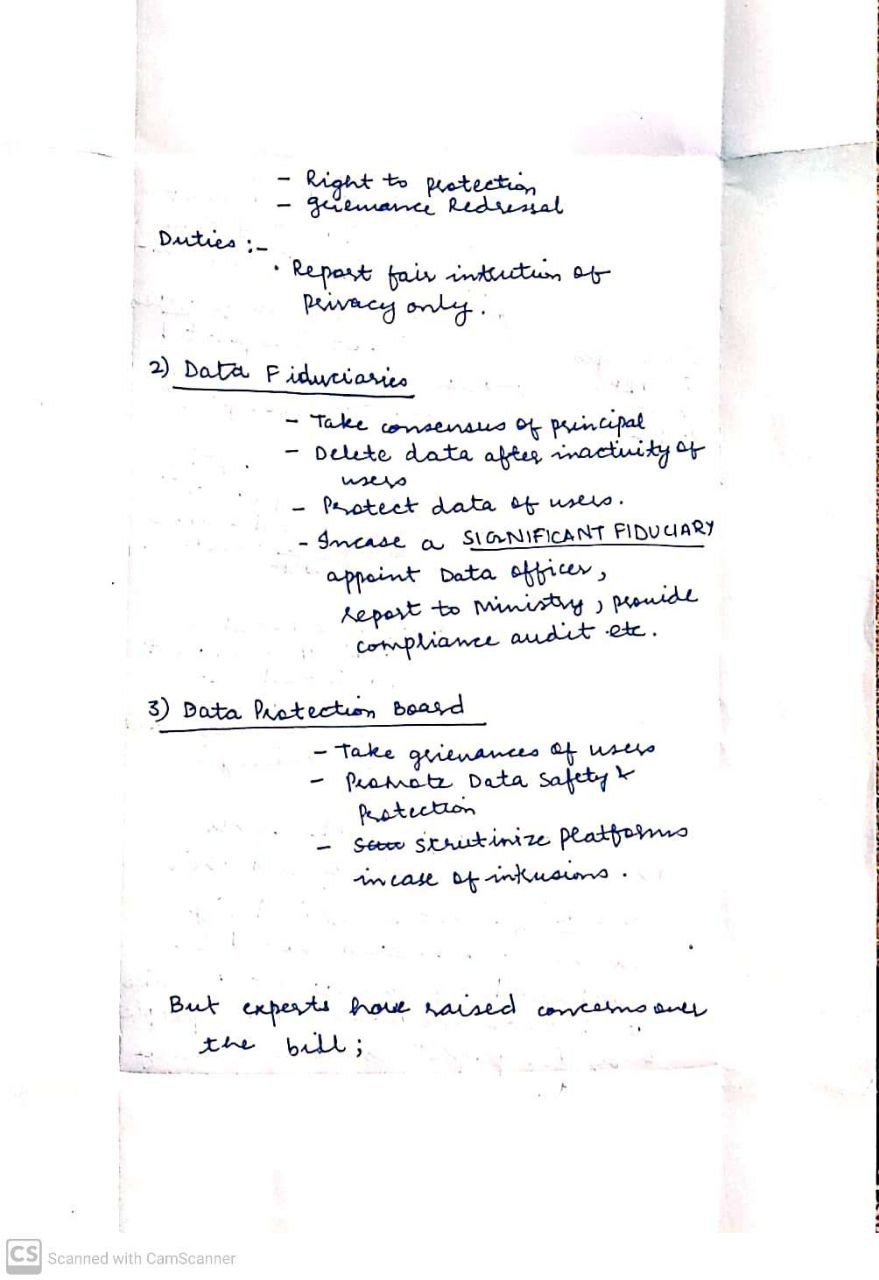 - Right to protection
- grienvance Redressal
Duties :-
• Report fair intrution of
privacy only.
2) Data Fiduciaries
- Take consensus of principal
- Delete data after inactivity of
users
- Protect data of users.
- Incase a SIGNIFICANT FIDUCIARY
appoint Data officer,
report to Ministry, provide
compliance audit etc.
3) Data Protection Board
- Take grievances of users
- Promote Data Safety &
Protection
- scrutinize platforms
incase of intrusions.
But experts have raised concerns over
the bill;
CS Scanned with CamScanner